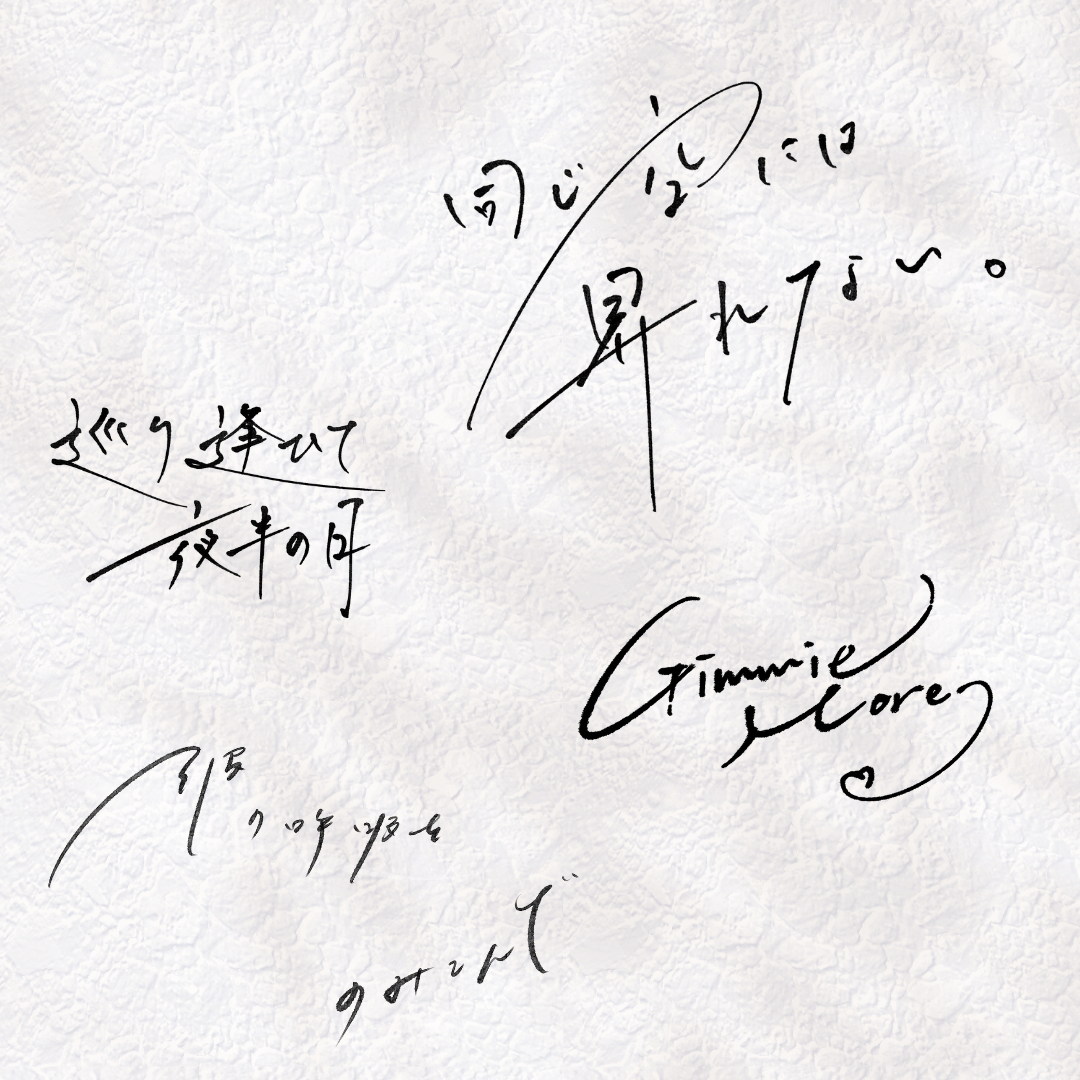 同じ空には
昇れない。
巡り逢ひて
夜半の月
Gimmie
More
の呼吸を
のみこんで